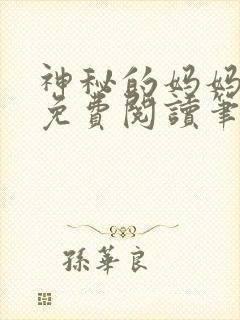 神秘的妈妈
免費閱讀筆
孫華良